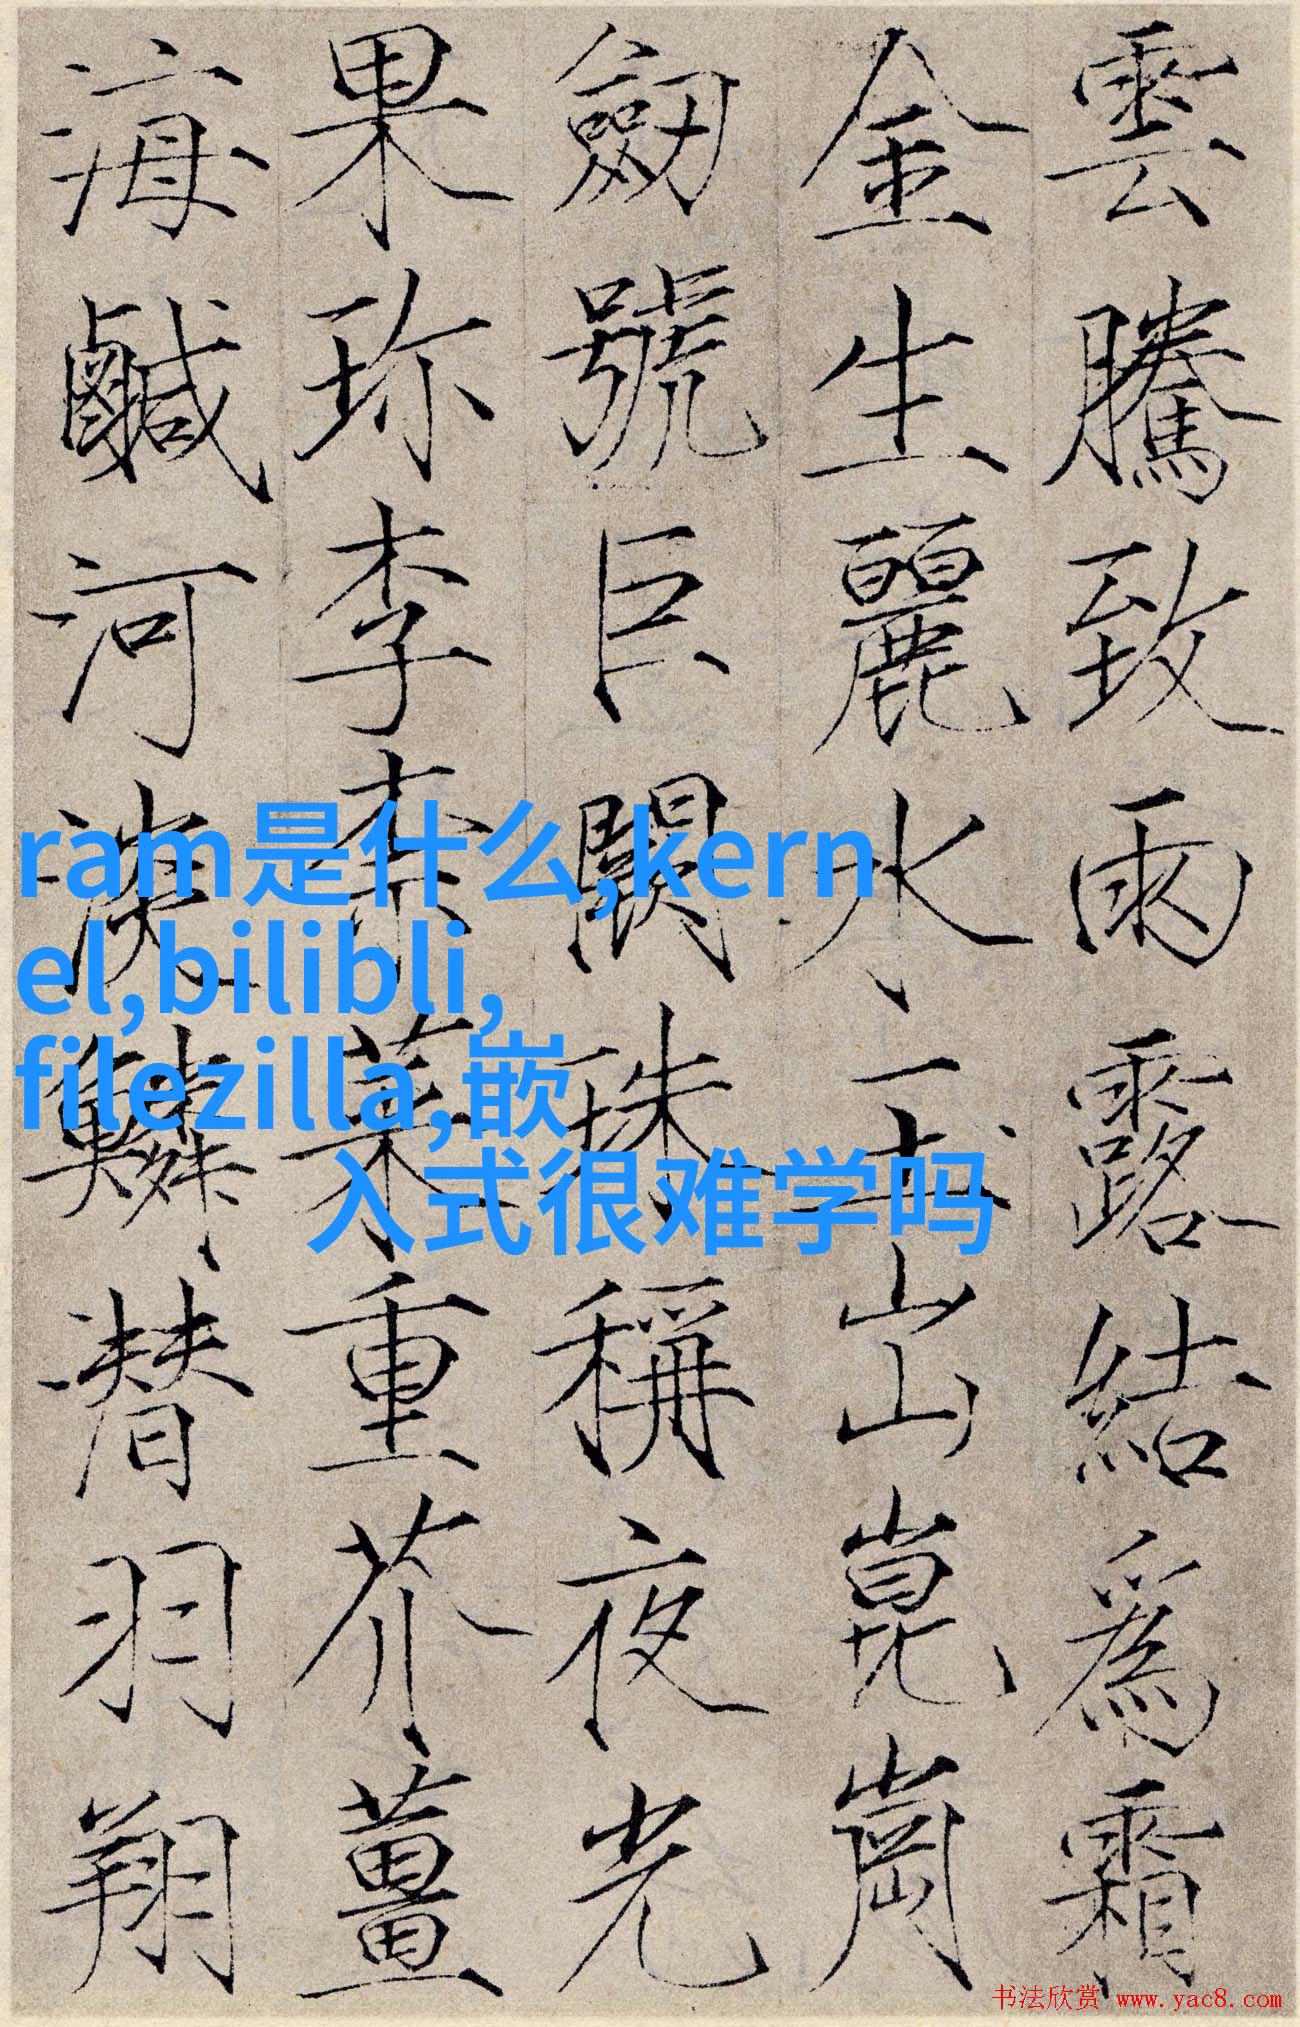 雲騰致雨露結爲霜
金生麗水玉出崑崗
劒號巨闕珠稱夜光
果珎李柰菜重芥薑
海鹹河淡鱗潜羽翔
ram是什么,kern
el,bilibli,
filezilla,嵌
入式很难学吗
书法欣赏 www.yac8.com